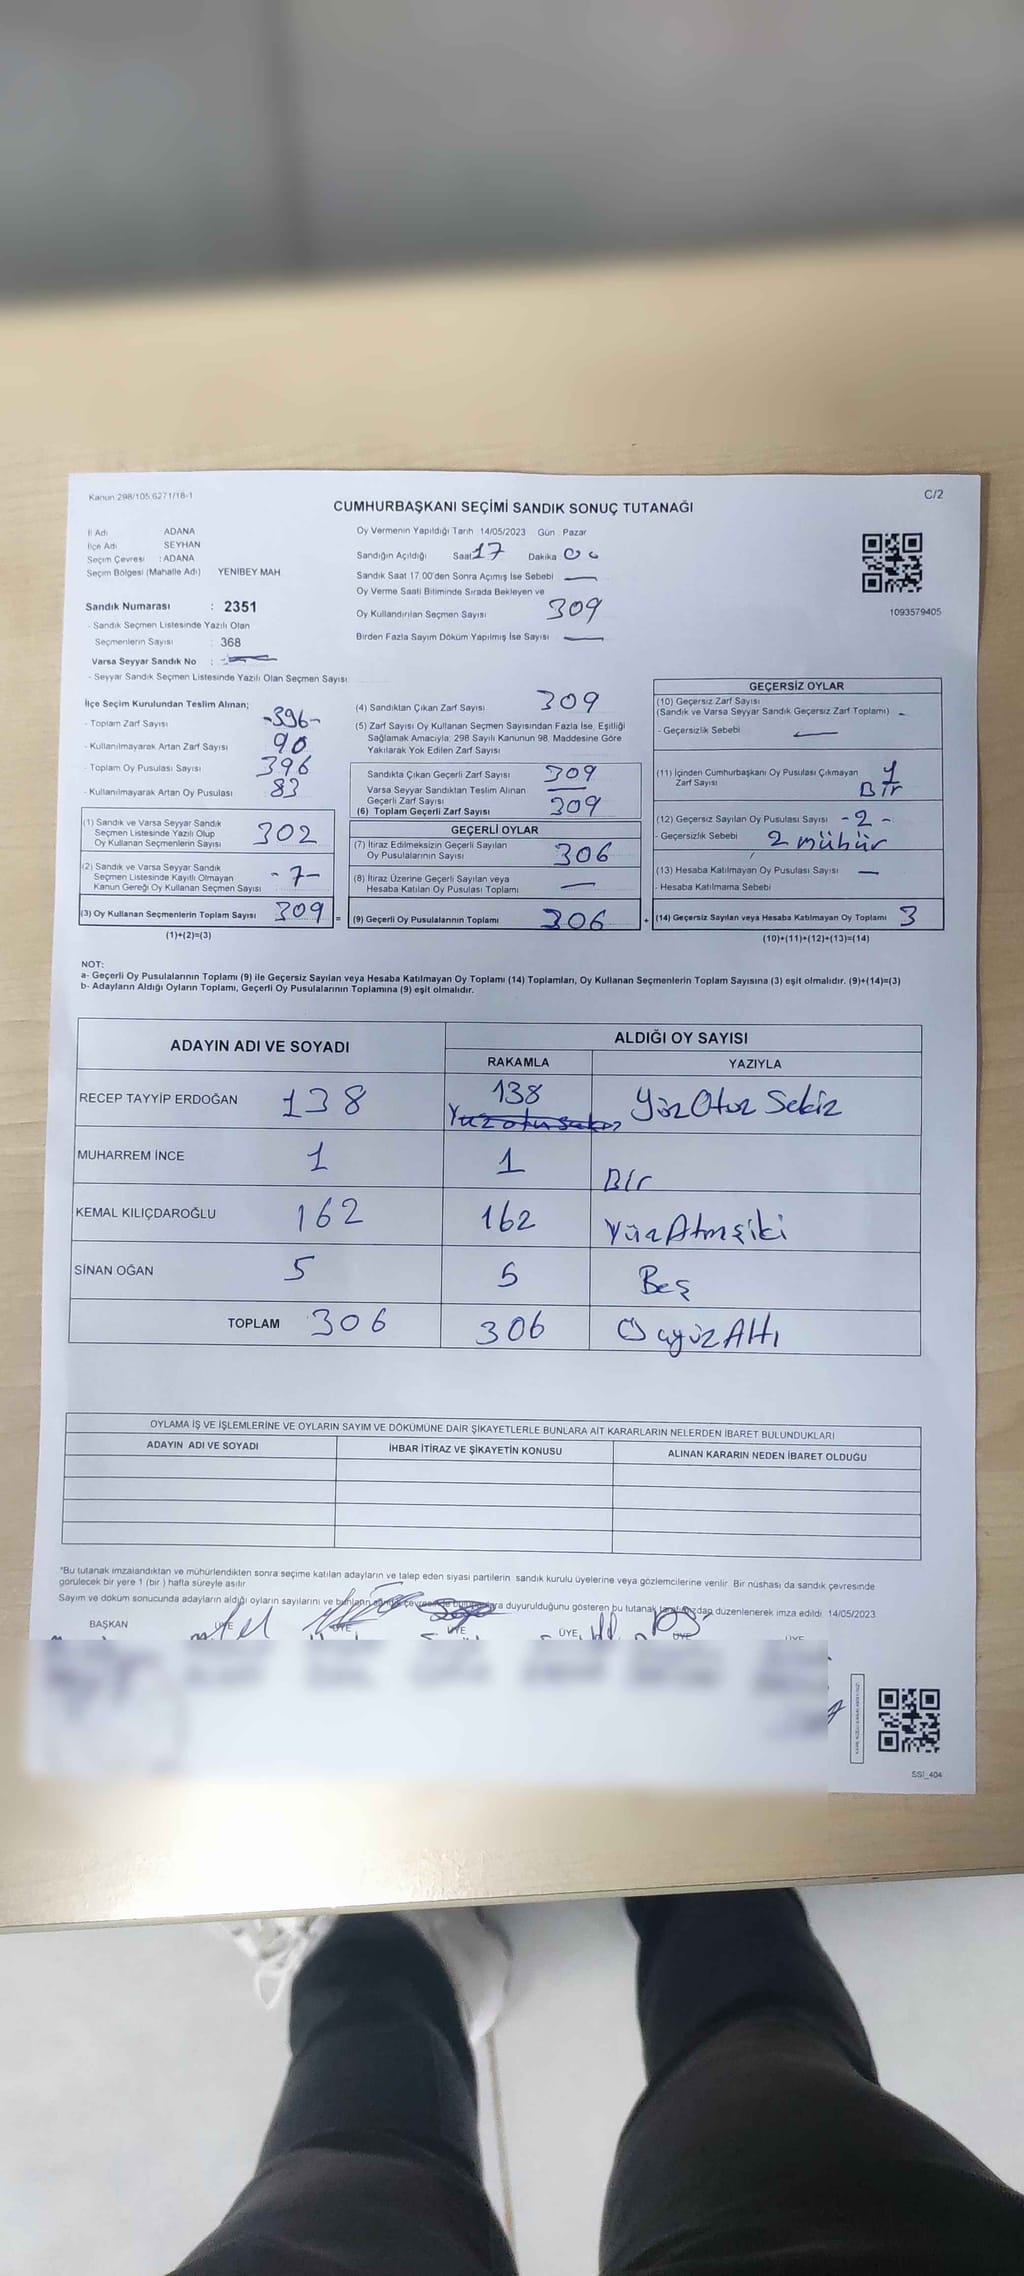 Kanun:298/105;6271/18-1
C/2
CUMHURBAŞKANI SEÇİMİ SANDIK SONUÇ TUTANAĞI
İl Adı ADANA
İlçe Adı SEYHAN
Seçim Çevresi : ADANA
Seçim Bölgesi (Mahalle Adı) YENİBEY MAH.
Sandık Numarası : 2351
- Sandık Seçmen Listesinde Yazılı Olan
Seçmenlerin Sayısı : 368
Varsa Seyyar Sandık No :
- Seyyar Sandık Seçmen Listesinde Yazılı Olan Seçmen Sayısı:
Oy Vermenin Yapıldığı Tarih 14/05/2023 Gün : Pazar
Sandığın Açıldığı Saat 17 Dakika 00
Sandık Saat 17.00'den Sonra Açılmış İse Sebebi —
Oy Verme Saati Bitiminde Sırada Bekleyen ve
Oy Kullandırılan Seçmen Sayısı 309
Birden Fazla Sayım Döküm Yapılmış İse Sayısı —
1093579405
İlçe Seçim Kurulundan Teslim Alınan;
- Toplam Zarf Sayısı -396-
- Kullanılmayarak Artan Zarf Sayısı 90
- Toplam Oy Pusulası Sayısı 396
- Kullanılmayarak Artan Oy Pusulası 83
(1) Sandık ve Varsa Seyyar Sandık
Seçmen Listesinde Yazılı Olup
Oy Kullanan Seçmenlerin Sayısı 302
(2) Sandık ve Varsa Seyyar Sandık
Seçmen Listesinde Kayıtlı Olmayan
Kanun Gereği Oy Kullanan Seçmen Sayısı -7-
(3) Oy Kullanan Seçmenlerin Toplam Sayısı 309 =
(1)+(2)=(3)
(4) Sandıktan Çıkan Zarf Sayısı 309
(5) Zarf Sayısı Oy Kullanan Seçmen Sayısından Fazla İse, Eşitliği
Sağlamak Amacıyla; 298 Sayılı Kanunun 98. Maddesine Göre
Yakılarak Yok Edilen Zarf Sayısı
Sandıkta Çıkan Geçerli Zarf Sayısı 309
Varsa Seyyar Sandıktan Teslim Alınan
Geçerli Zarf Sayısı —
(6) Toplam Geçerli Zarf Sayısı 309
GEÇERLİ OYLAR
(7) İtiraz Edilmeksizin Geçerli Sayılan
Oy Pusulalarının Sayısı 306
(8) İtiraz Üzerine Geçerli Sayılan veya
Hesaba Katılan Oy Pusulası Toplamı —
(9) Geçerli Oy Pusulalarının Toplamı 306 +
GEÇERSİZ OYLAR
(10) Geçersiz Zarf Sayısı
(Sandık ve Varsa Seyyar Sandık Geçersiz Zarf Toplamı) -
- Geçersizlik Sebebi —
(11) İçinden Cumhurbaşkanı Oy Pusulası Çıkmayan
Zarf Sayısı 1 Bir
(12) Geçersiz Sayılan Oy Pusulası Sayısı -2-
- Geçersizlik Sebebi 2 mühür
(13) Hesaba Katılmayan Oy Pusulası Sayısı —
- Hesaba Katılmama Sebebi
(14) Geçersiz Sayılan veya Hesaba Katılmayan Oy Toplamı 3
(10)+(11)+(12)+(13)=(14)
NOT:
a- Geçerli Oy Pusulalarının Toplamı (9) ile Geçersiz Sayılan veya Hesaba Katılmayan Oy Toplamı (14) Toplamları, Oy Kullanan Seçmenlerin Toplam Sayısına (3) eşit olmalıdır. (9)+(14)=(3)
b- Adayların Aldığı Oyların Toplamı, Geçerli Oy Pusulalarının Toplamına (9) eşit olmalıdır.
ADAYIN ADI VE SOYADI
ALDIĞI OY SAYISI
RAKAMLA YAZIYLA
RECEP TAYYİP ERDOĞAN 138 138 Yüz Otuz Sekiz
Yuzotuzsekiz
MUHARREM İNCE 1 1 Bir
KEMAL KILIÇDAROĞLU 162 162 YüzAtmışiki
SİNAN OĞAN 5 5 Beş
TOPLAM 306 306 ÜçyüzAltı
OYLAMA İŞ VE İŞLEMLERİNE VE OYLARIN SAYIM VE DÖKÜMÜNE DAİR ŞİKAYETLERLE BUNLARA AİT KARARLARIN NELERDEN İBARET BULUNDUKLARI
ADAYIN ADI VE SOYADI İHBAR İTİRAZ VE ŞİKAYETİN KONUSU ALINAN KARARIN NEDEN İBARET OLDUĞU
*Bu tutanak imzalandıktan ve mühürlendikten sonra seçime katılan adayların ve talep eden siyasi partilerin sandık kurulu üyelerine veya gözlemcilerine verilir. Bir nüshası da sandık çevresinde
görülecek bir yere 1 (bir ) hafta süreyle asılır.
Sayım ve döküm sonucunda adayların aldığı oyların sayılarını ve bunların sandık çevresinde duyurulduğunu gösteren bu tutanak tarafımızdan düzenlenerek imza edildi. 14/05/2023
BAŞKAN ÜYE ÜYE ÜYE ÜYE ÜYE ÜYE
SSİ_404